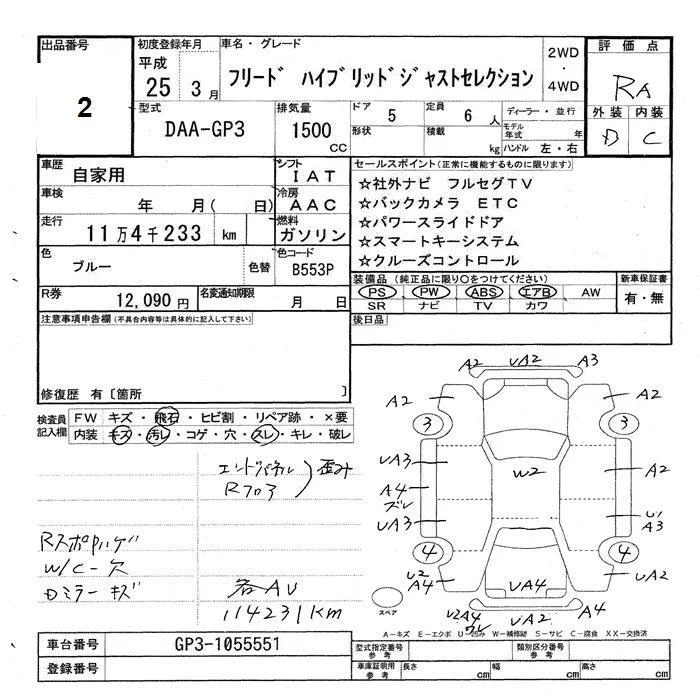 出品番号
2
初度登録年月
平成
25 3月
車名・グレード
フリード ハイブリッドジャストセレクション
2WD
・
4WD
評価点
RA
外装 内装
D C
型式
DAA-GP3
排気量
1500 CC
ドア 5
定員 6 人
形状
積載 kg
ディーラー・並行
モデル年式 年
ハンドル 左・右
車歴
自家用
シフト
IAT
車検
年 月( 日)
冷房
AAC
走行
11万4千233 km
燃料
ガソリン
色
ブルー
色替
色コード
B553P
R券
12,090円
名変通知期限
月 日
セールスポイント(正常に機能するものに限ります)
☆社外ナビ フルセグTV
☆バックカメラ ETC
☆パワースライドドア
☆スマートキーシステム
☆クルーズコントロール
装備品(純正品に限り○をつけてください)
新車保証書
PS PW ABS エアB AW
SR ナビ TV カワ
有・無
後日品
注意事項申告欄(不具合内容等は具体的に記入して下さい)
修復歴 有〔箇所 〕
検査員記入欄
FW キズ・飛石・ヒビ割・リペア跡・×要
内装 キズ・汚レ・コゲ・穴・スレ・キレ・破レ
エンドパネル
Rフロア
歪み
W/C-欠
Dミラーキズ
各AU
114231KM
A2 UA2 A3
A2 A2
3 3
UA3 W2 A2
A4
ズレ
UA3 U1
A3
4 4
U2
A4 UA4 UA2
スペア
U2A4 UA2 A4
ワレ
A-キズ E-エクボ U-凹み W-補修跡 S-サビ C-腐食 XX-交換済
車台番号
GP3-1055551
登録番号
型式指定番号
参考
類別区分番号
参考
車庫証明用
参考
長さ cm
幅 cm
高さ cm